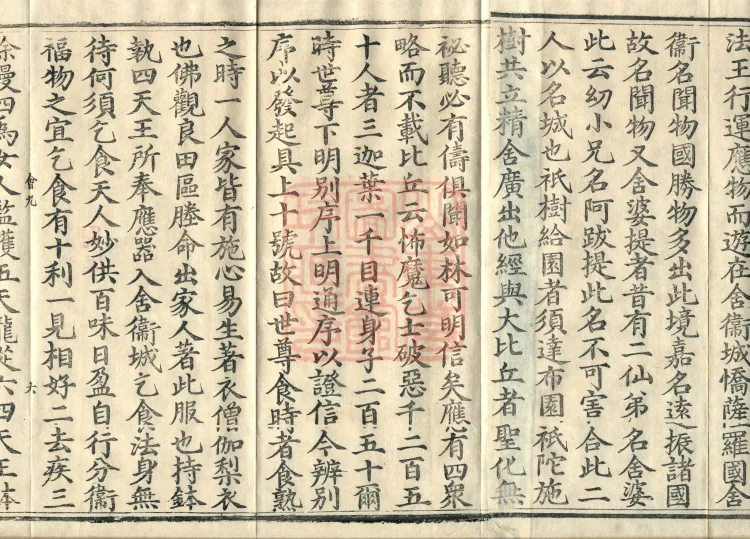 法王行運應物而遊在舍衛城憍薩羅國舍
衛名聞物國勝物多出此境嘉名遠振諸國
故名聞物又舍婆提者昔有二仙弟名舍婆
此云幼小兄名阿跋提此名不可害合此二
人以名城也祇樹給園者須達布園祇陀施
樹共立精舍廣出他經與大比丘者聖化無
祕聽必有儔俱聞如林可明信矣應有四衆
略而不載比丘云怖魔乞士破惡千二百五
十人者三迦葉一千目連身子二百五十爾
時世尊下明別序上明通序以證信今辨別
序以發起具上十號故曰世尊食時者食熟
之時一人家皆有施心易生著衣僧伽梨衣
也佛觀良田區塍命出家人著此服也持鉢
執四天王所奉應器入舍衞城乞食法身無
待何須乞食天人妙供百味日盈自行分衞
福物之宜乞食有十利一見相好二去疾三
會九
六
除慢四爲女人監護五天龍從六四天王鉢